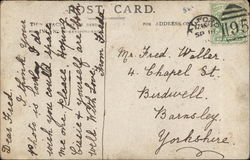 POST CARD.
FOR ADDRESS O
Dear Fred.
I think your
photo is lovely I do
wish you could spare
me one please. Hoping
Cissie & yourself are keeping
well With Love
from Freda
Mr. Fred Waller.
4. Chapel St.
Birdwell.
Barnsley.
Yorkshire.
195